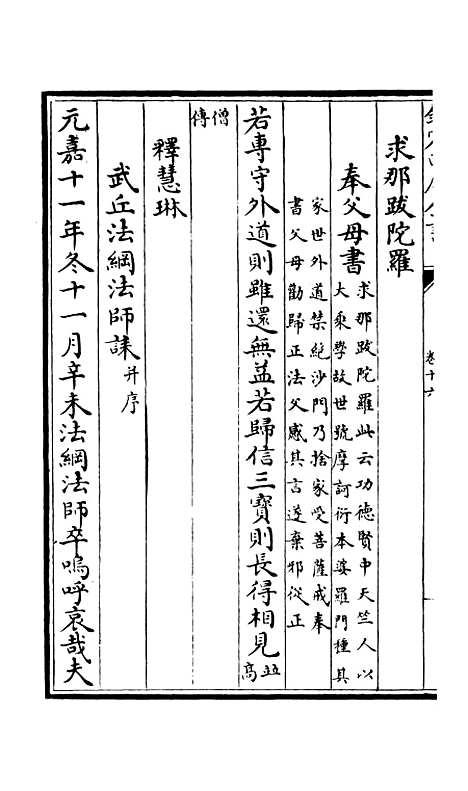 求那跋陀羅
奉父母書
求那跋陀羅此云功德賢中天竺人以
大乘學故世號摩訶衍本婆羅門種其
家世外道禁絶沙門乃捨家受菩薩戒奉
書父母勸歸正法父感其言遂棄邪從正
若専守外道則雖還無益若歸信三寳則長得相見
並高
僧傳
釋慧琳
武丘法綱法師誄
并序
元嘉十一年冬十一月辛未法綱法師卒嗚呼哀哉夫
卷十六